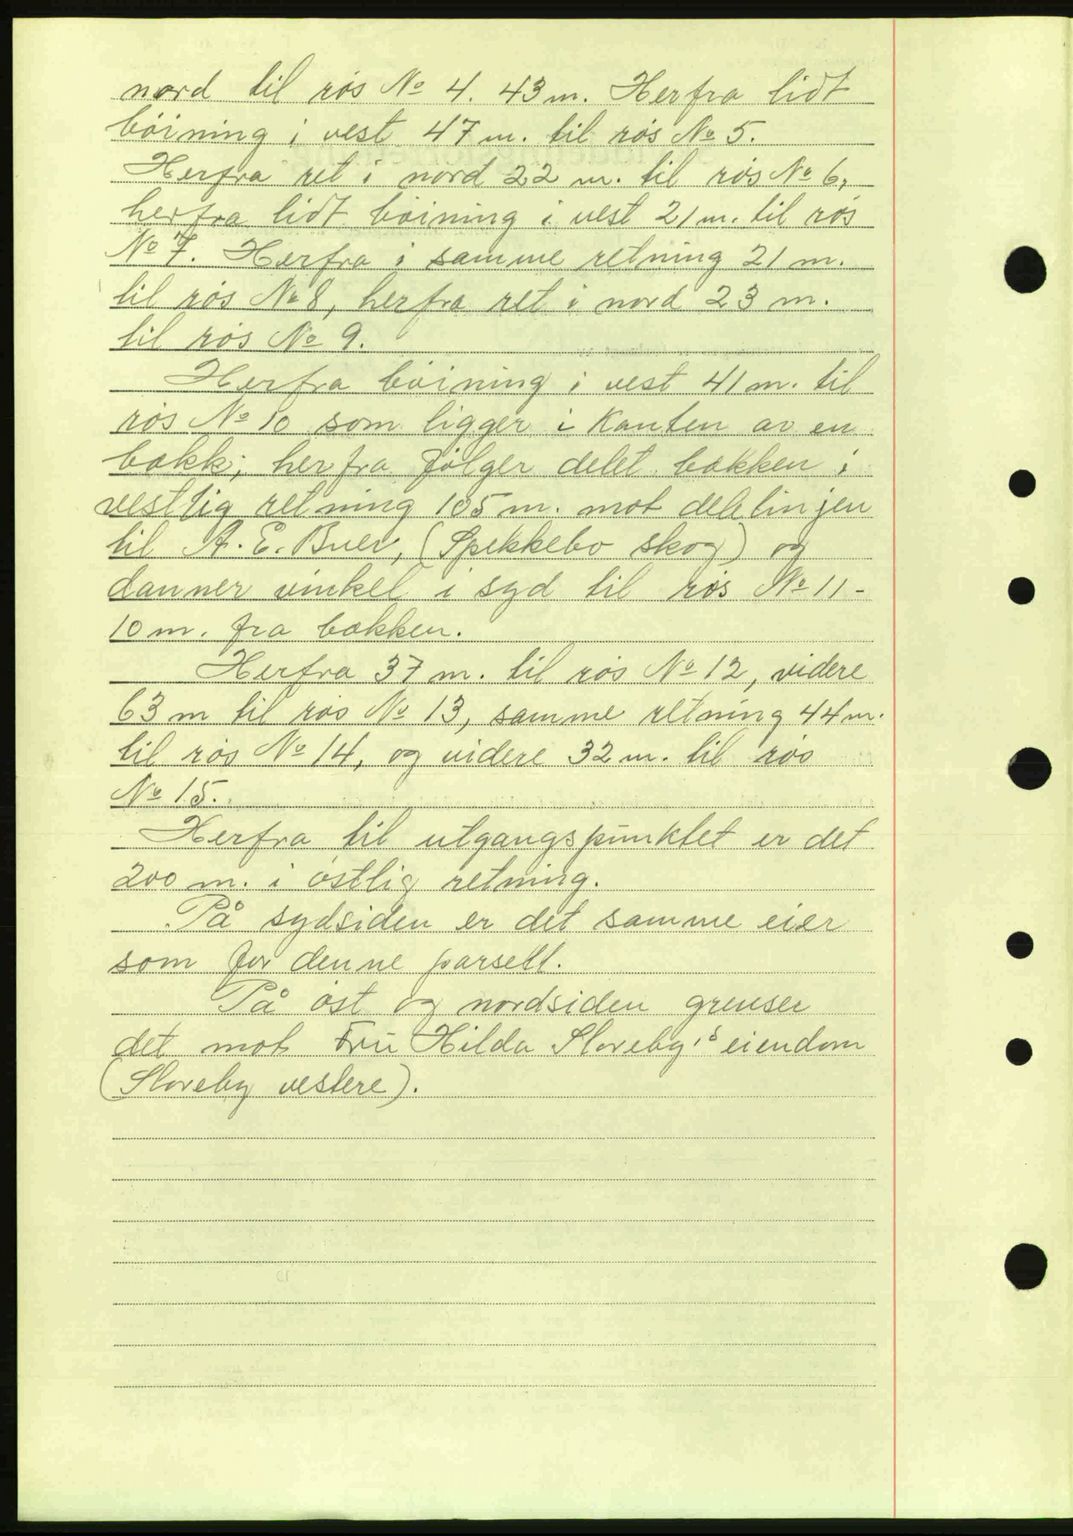 nord til røs No 4. 43 m. Herfra lidt
bøining i vest 47 m. til røs No 5.
Herfra ret i nord 22 m. til røs No 6,
herfra lidt bøining i vest 21 m. til røs
No 7. Herfra i samme retning 21 m.
til røs No 8, herfra ret i nord 23 m.
til røs No 9.
Herfra bøining i vest 41 m. til
røs No 10 som ligger i Kanten av en
bækk; herfra følger delet bækken i
vestlig retning 105 m. mot delelinjen
til A. E. Buer, (Spekkebo skog) og
danner vinkel i syd til røs No 11 -
10 m. fra bækken.
Herfra 37 m. til røs No 12, videre
63 m til røs No 13, samme retning 44 m.
til røs No 14, og videre 32 m. til røs
No 15.
Herfra til utgangspunktet er det
200 m. i østlig retning.
På sydsiden er det samme eier
som for denne parsell.
På øst og nordsiden grenser
det mot Fru Hilda Sloreby's eiendom
(Sloreby vestere).